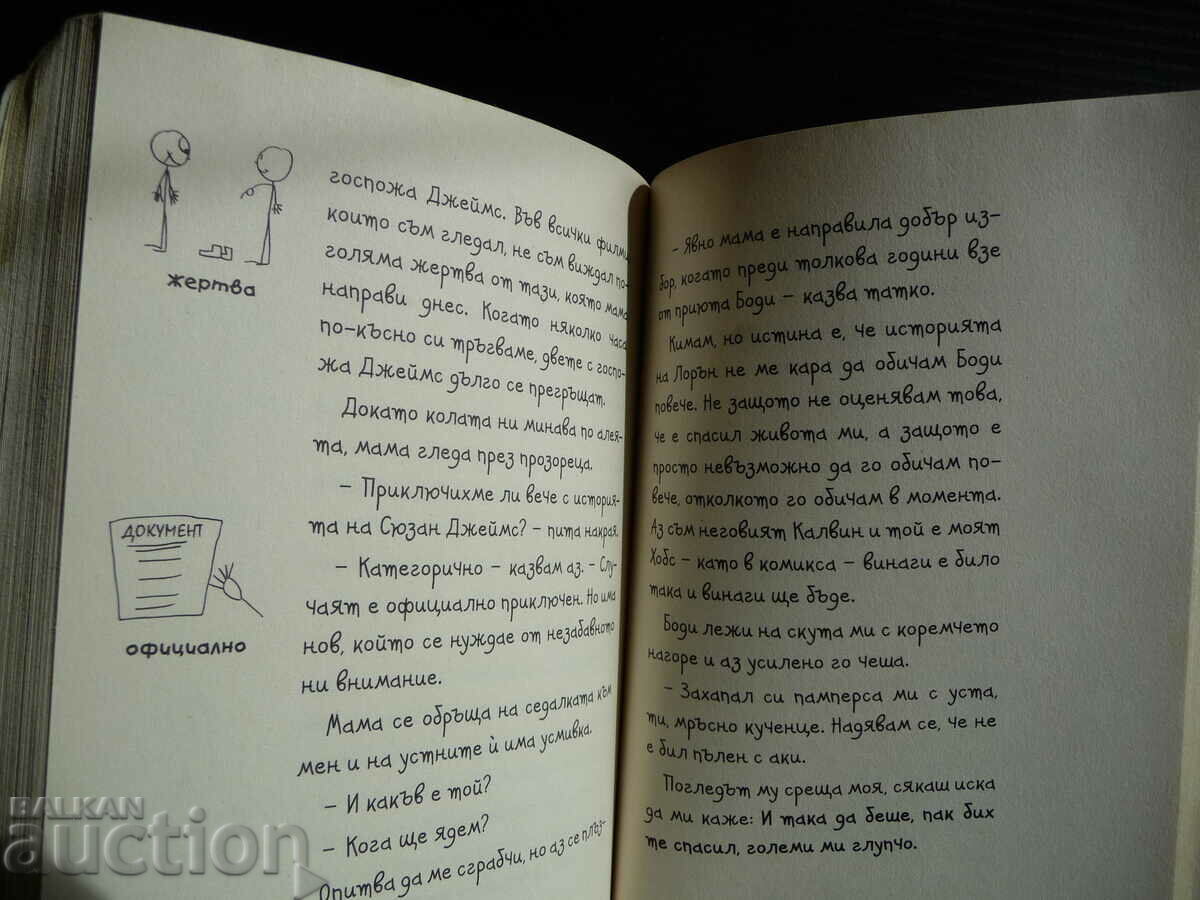 жертва
ДОКУМЕНТ
официално
госпожа Джеймс. Във всички филми,
които съм гледал, не съм виждал по-
голяма жертва от тази, която мама
направи днес. Когато няколко часа
по-късно си тръгваме, двете с госпо-
жа Джеймс дълго се прегръщат.
Докато колата ни минава по алея-
та, мама гледа през прозореца.
– Приключихме ли вече с история-
та на Сюзан Джеймс? – пита накрая.
– Категорично – казвам аз. – Слу-
чаят е официално приключен. Но има
нов, който се нуждае от незабавното
ни внимание.
Мама се обръща на седалката към
мен и на устните ѝ има усмивка.
– И какъв е той?
– Кога ще ядем?
Опитва да ме сграбчи, но аз се плъз-
– Явно мама е направила добър из-
бор, когато преди толкова години взе
от приюта Боди – казва татко.
Кимам, но истина е, че историята
на Лорън не ме кара да обичам Боди
повече. Не защото не оценявам това,
че е спасил живота ми, а защото е
просто невъзможно да го обичам по-
вече, отколкото го обичам в момента.
Аз съм неговият Калвин и той е моят
Хобс – като в комикса – винаги е било
така и винаги ще бъде.
Боди лежи на скута ми с коремчето
нагоре и аз усилено го чеша.
– Захапал си памперса ми с уста,
ти, мръсно кученце. Надявам се, че не
е бил пълен с аки.
Погледът му среща моя, сякаш иска
да ми каже: И така да беше, пак бих
те спасил, големи ми глупчо.
BALKAN
auction